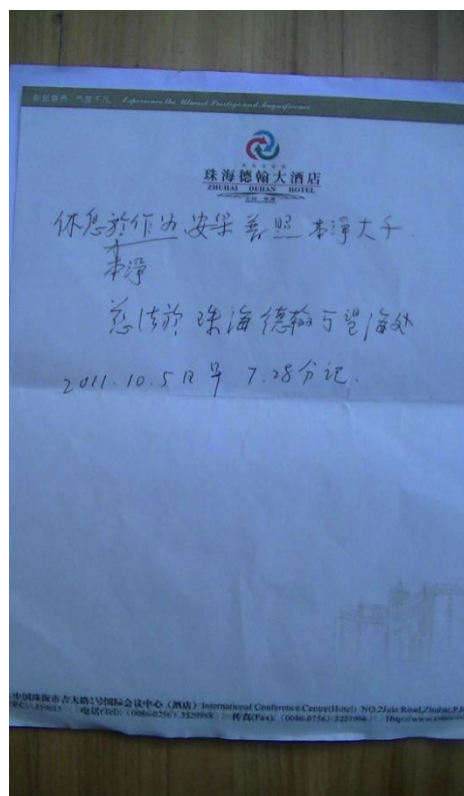 Experience the Utmost Prestige and Magnificence
珠海德翰大酒店
ZHUHAI DEHAN HOTEL
休息於作为 安乐 普照 本淨大千.
本淨
慈法於 珠海德翰可望海处
2011.10.5日早 7.28分记.
中国珠海市吉大路2号国际会议中心（酒店）International Conference Centre(Hotel) NO.2Jida Road,Zhuhai,P.R
电话(Tel): (0086-0756) 3529988 传真(Fax): (0086-0756)